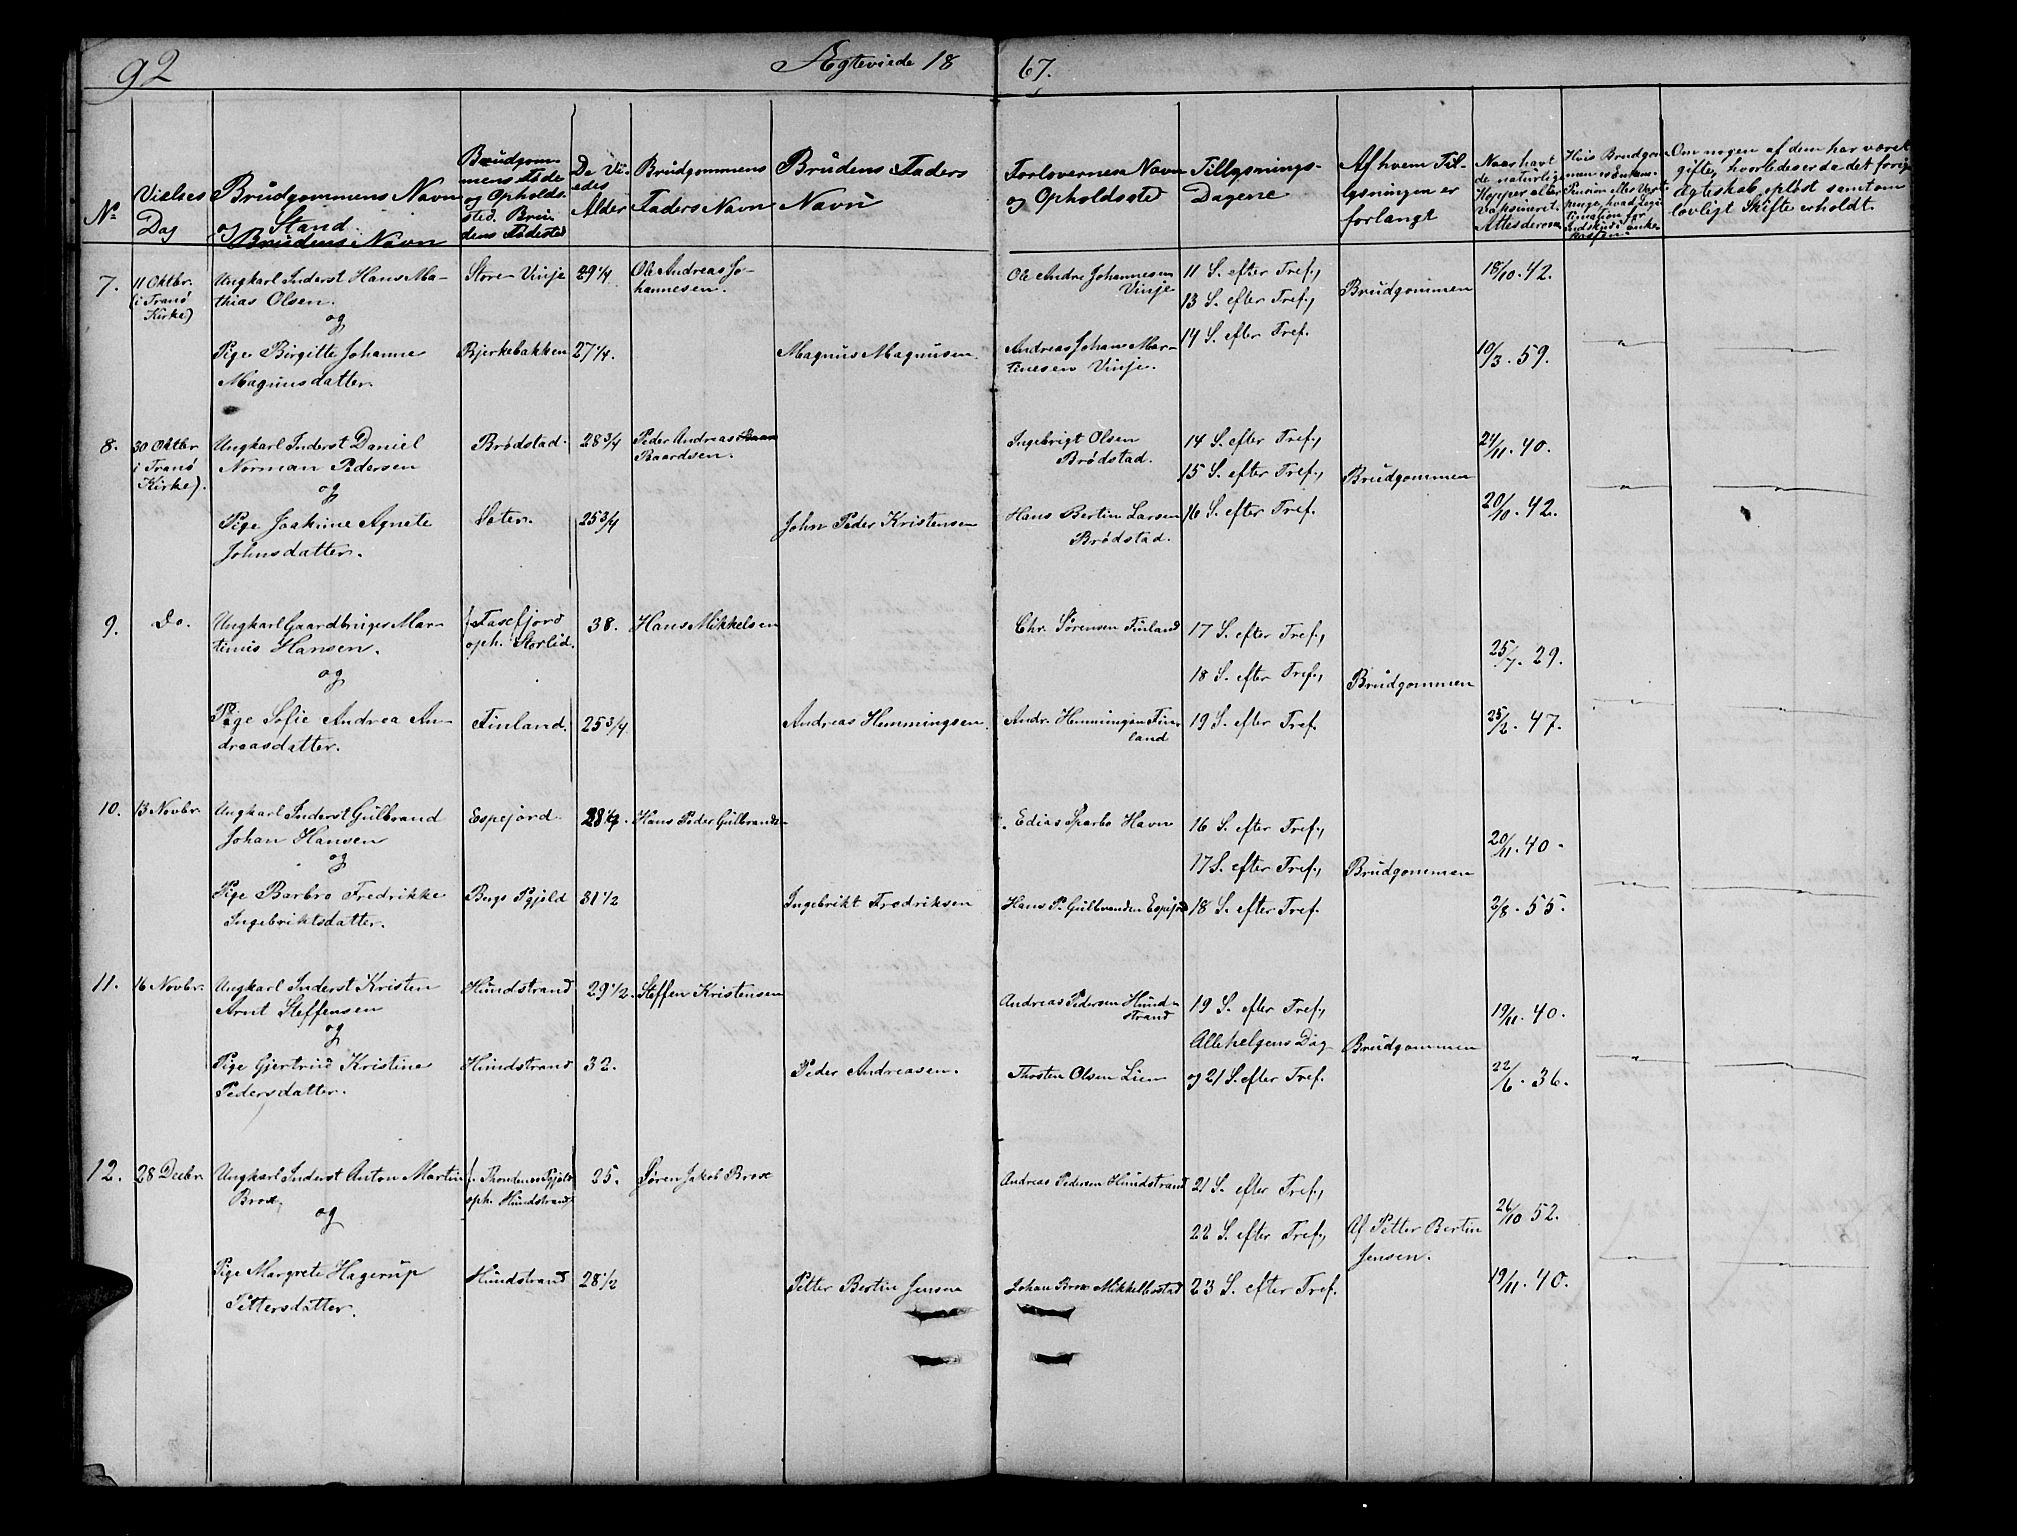 92
Ægteviede 18 67.
No
Vielses Dag
Brudgommens Navn og Stand Brudens Navn
Brudgommens Føde og Opholdssted. Brudens Fødested
De Viedes Alder
Brudgommens Faders Navn
Brudens Faders Navn
Forlovernes Navn og Opholdssted
Tillysnings-Dagene
Af hvem Tillysningen er forlangt
Naar havt de naturlige Kopper eller Vaksineret. Attesderom
Om nogen af dem har været gifte, hvorledes er da det forige Ægteskab opløst samt om lovligt Skifte er holdt.
7. 11 Oktbr. (i Tranø Kirke)
Ungkarl Inderst Hans Mathias Olsen. Store Vinje 29 1/4 Ole Andreas Johannesen.
Ole Andr. Johannesen Vinje
11 S. efter Tref.,
13 S. efter Tref.,
14 S. efter Tref.
Brudgommen
18/10. 42.
og
Pige Birgitte Johanne Magnusdatter. Bjerkebakken 27 1/4. Magnus Magnusen.
Andreas Johans Martinesen Vinje.
10/3. 59. " 
8. 30 Oktbr (i Tranø Kirke).
Ungkarl Inderst Daniel Norman Pedersen Brødstad. 28 3/4 Peder Andreas Baardsen.
Ingebrigt Olsen Brødstad.
14 S. efter Tref.,
15 S. efter Tref.,
16 S. efter Tref.
Brudgommen
24/11. 40.
og
Pige Joakime Agnete Johnsdatter. Sæter. 25 3/4 John Peder Kristensen
Hans Bertin Larsen Brødstad.
20/10. 42. "
9. Do.
Ungkarl Gaardbruger Martinus Hansen. f. Tasefjord oph. Storlid. 38. Hans Mikkelsen
Chr. Sørensen Finland
17 S. efter Tref.,
18 S. efter Tref.,
19 S. efter Tref.
Brudgommen
25/7. 29.
og
Pige Sofie Andrea Andreasdatter. Finland. 25 3/4 Andreas Hemmingsen.
Andr. Hemmingsen Finland
25/2. 47. "
10. 13 Novbr.
Ungkarl Inderst Gulbrand Johan Hansen Espejord. 28 1/2. Hans Peder Gulbrands-
Edias Sparbo Havn
16 S. efter Tref.,
17 S. efter Tref.,
18 S. efter Tref.
Brudgommen
20/11. 40.
og
Pige Barbro Fredrikke Ingebriktsdatter. Bergs Pgjæld 31 1/2 Ingebrikt Fredriksen
Hans P. Gulbrandsen Espejord
2/8. 55. "
11. 16 Novbr.
Ungkarl Inderst Kristen Arnt Steffensen Hundstrand 29 1/2. Steffen Kristensen
Andreas Pedersen Hundstrand
19 S. efter Tref.,
Allehelgens Dag
og 21 S. efter Tref.
Brudgommen
19/11. 40.
og
Pige Gjertrud Kristine Pedersdatter. Hundstrand 32. Peder Andreasen.
Thosten Olsen Lien
22/6. 36. "
12. 28 Decbr.
Ungkarl Inderst Anton Martin Brox, f. Throndenes Pgjæld oph. Hundstrand 25. Søren Jakob Brox
Andreas Pedersen Hundstrand
21 S. efter Tref.,
22 S. efter Tref.,
23 S. efter Tref.
Af Petter Bertin Jensen.
26/10 52.
og
Pige Margrete Hagerup Pettersdatter. Hundstrand 28 1/2 Petter Bertin Jensen
Johan Brox Mikkelbostad
19/11. 40. "